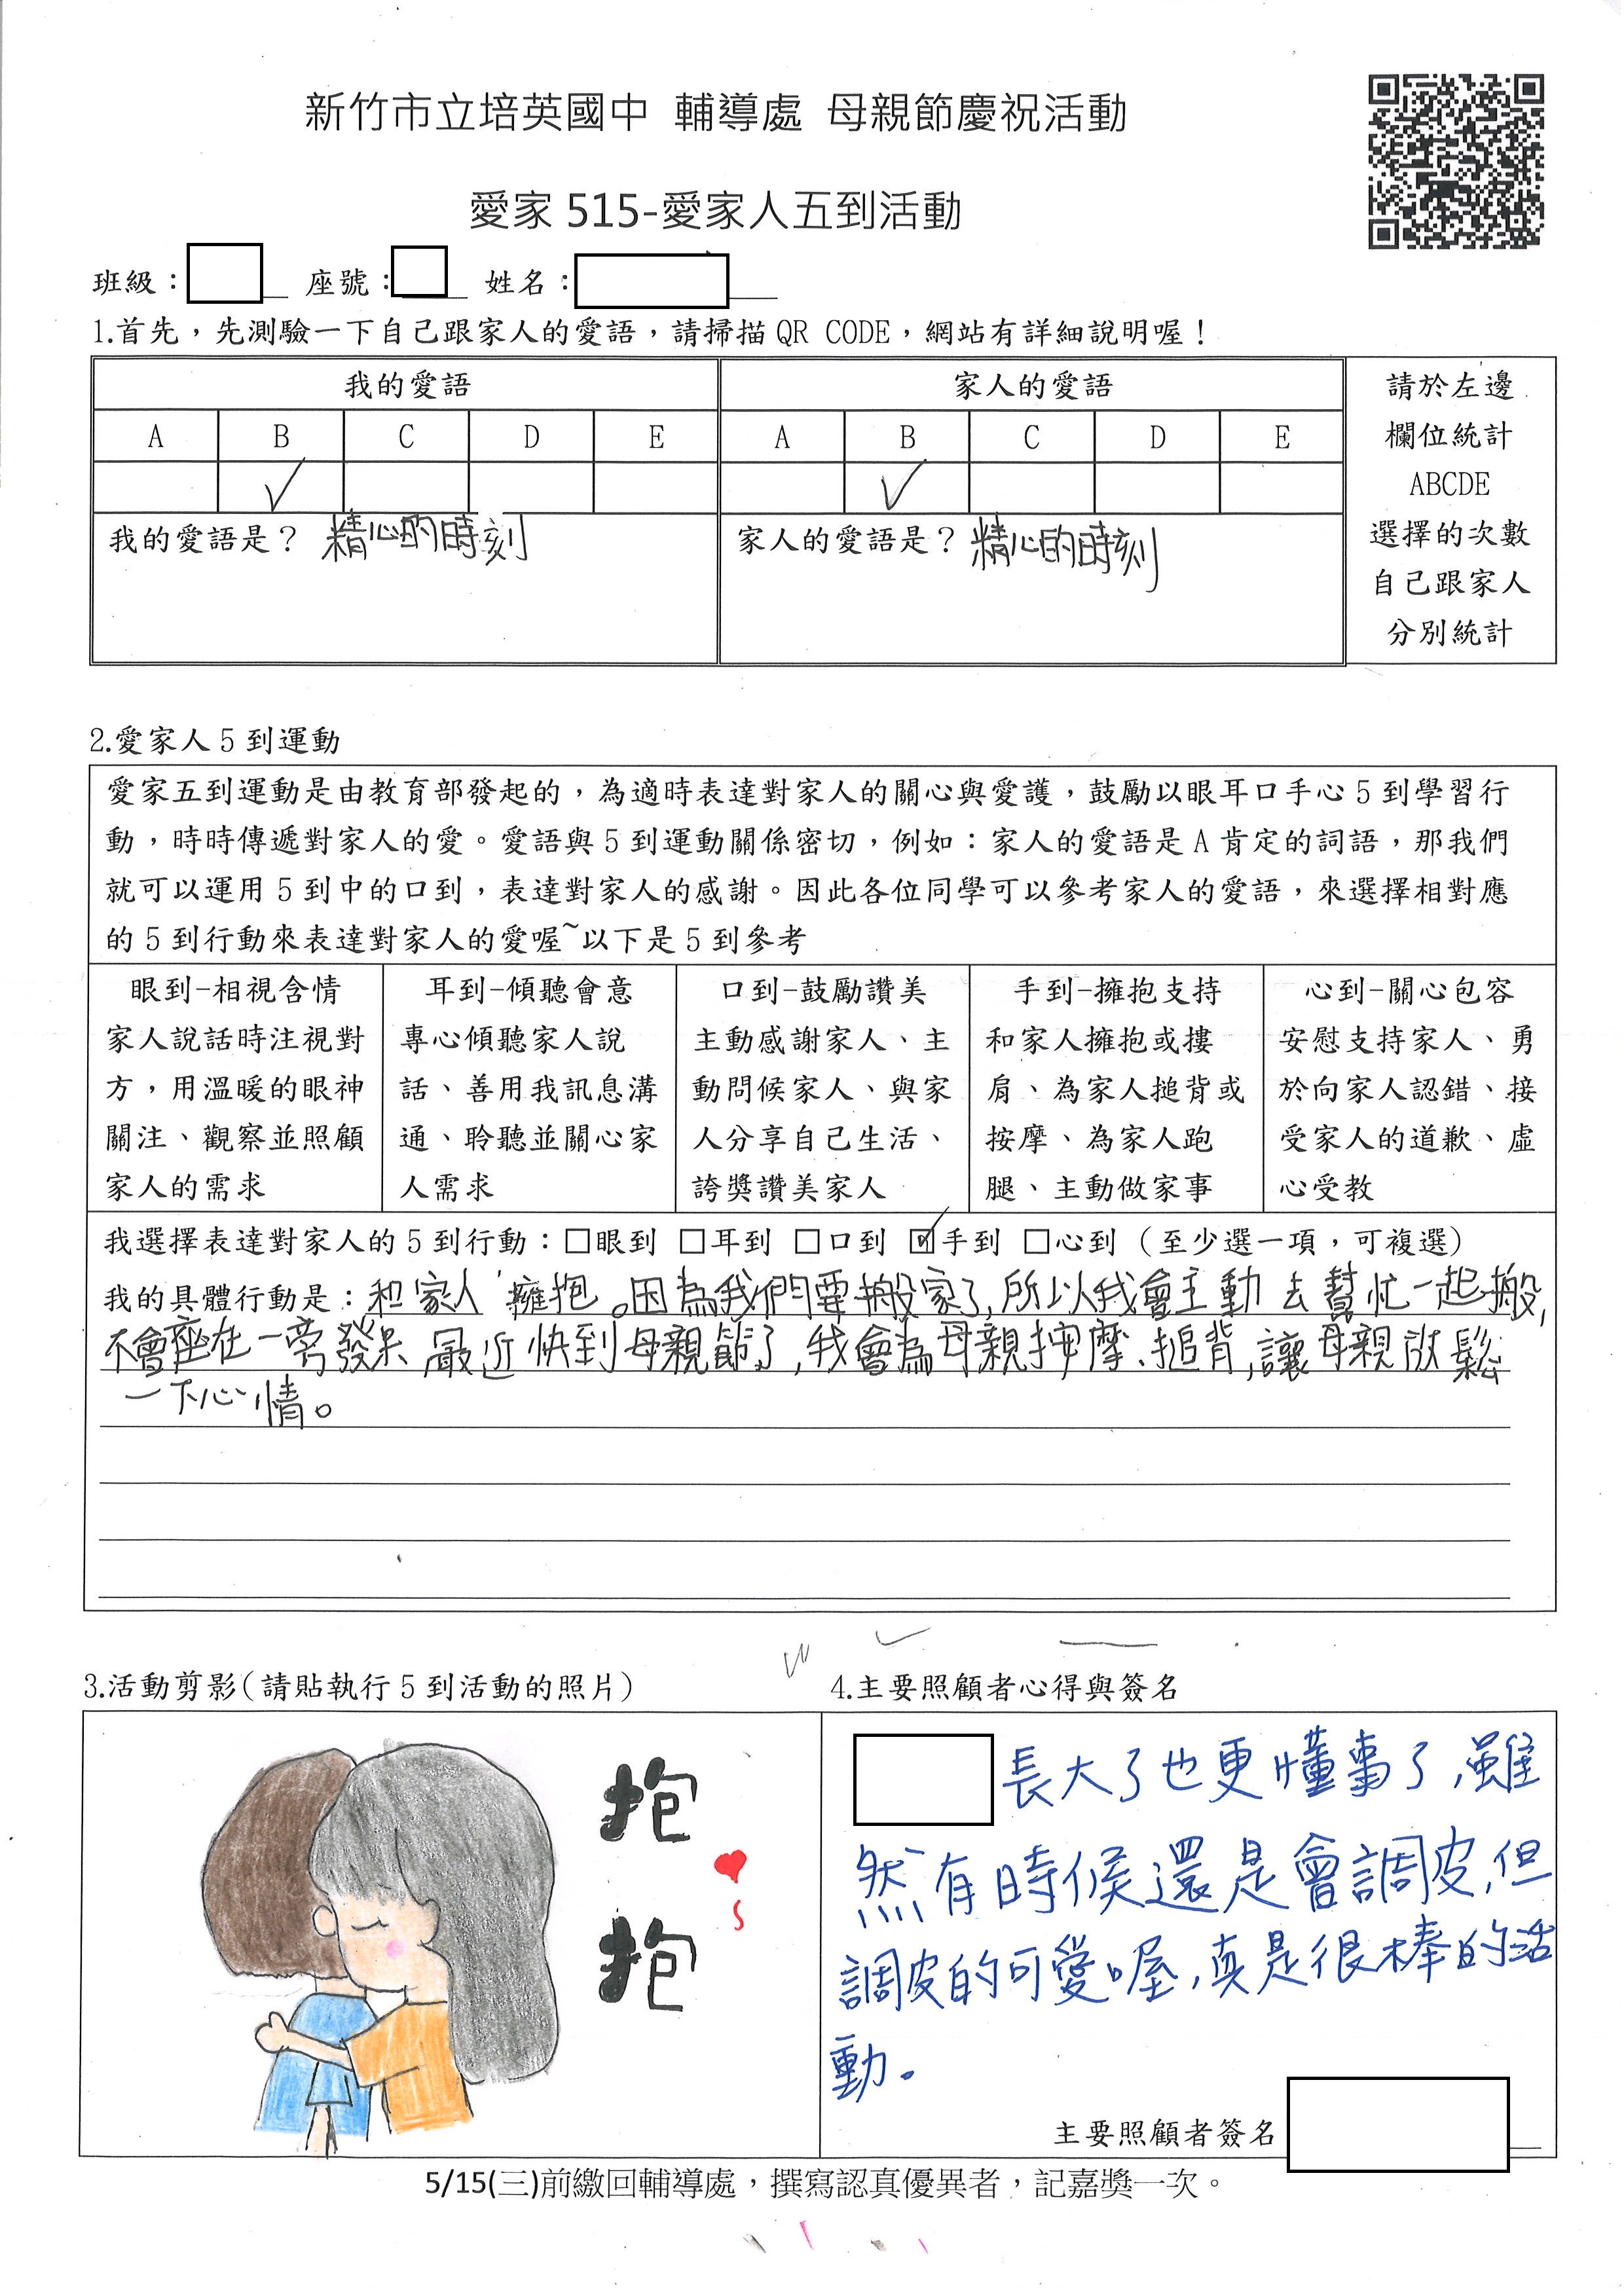 新竹市立培英國中 輔導處 母親節慶祝活動
愛家 515-愛家人五到活動
班級： 座號： 姓名：
1.首先，先測驗一下自己跟家人的愛語，請掃描 QR CODE，網站有詳細說明喔！
我的愛語 家人的愛語
A B C D E A B C D E
✓ ✓
我的愛語是？ 精心的時刻
家人的愛語是？ 精心的時刻
請於左邊
欄位統計
ABCDE
選擇的次數
自己跟家人
分別統計
2.愛家人 5 到運動
愛家五到運動是由教育部發起的，為適時表達對家人的關心與愛護，鼓勵以眼耳口手心 5 到學習行
動，時時傳遞對家人的愛。愛語與 5 到運動關係密切，例如：家人的愛語是 A 肯定的詞語，那我們
就可以運用 5 到中的口到，表達對家人的感謝。因此各位同學可以參考家人的愛語，來選擇相對應
的 5 到行動來表達對家人的愛喔~以下是 5 到參考
眼到-相視含情
家人說話時注視對
方，用溫暖的眼神
關注、觀察並照顧
家人的需求
耳到-傾聽會意
專心傾聽家人說
話、善用我訊息溝
通、聆聽並關心家
人需求
口到-鼓勵讚美
主動感謝家人、主
動問候家人、與家
人分享自己生活、
誇獎讚美家人
手到-擁抱支持
和家人擁抱或摟
肩、為家人搥背或
按摩、為家人跑
腿、主動做家事
心到-關心包容
安慰支持家人、勇
於向家人認錯、接
受家人的道歉、虛
心受教
我選擇表達對家人的 5 到行動：□眼到 □耳到 □口到 ☑手到 □心到（至少選一項，可複選）
我的具體行動是：和家人擁抱。因為我們要搬家了，所以我會主動去幫忙一起搬，
不會座在一旁發呆 最近快到母親節了，我會為母親按摩、搥背，讓母親放鬆
一下心情。
3.活動剪影(請貼執行 5 到活動的照片)
抱
抱
4.主要照顧者心得與簽名
長大了也更懂事了，雖
然有時候還是會調皮，但
調皮的可愛喔，真是很棒的活
動。
主要照顧者簽名
5/15(三)前繳回輔導處，撰寫認真優異者，記嘉獎一次。